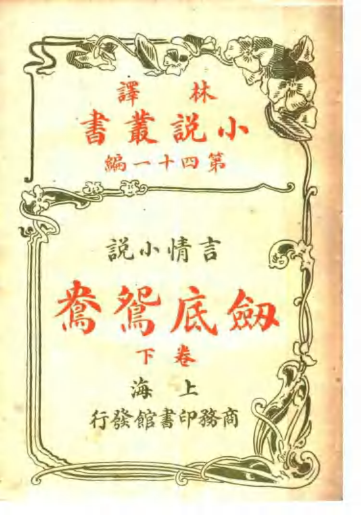 林譯
小説叢書
第四十一編
言情小説
劒底鴛鴦
卷下
上海
商務印書館發行